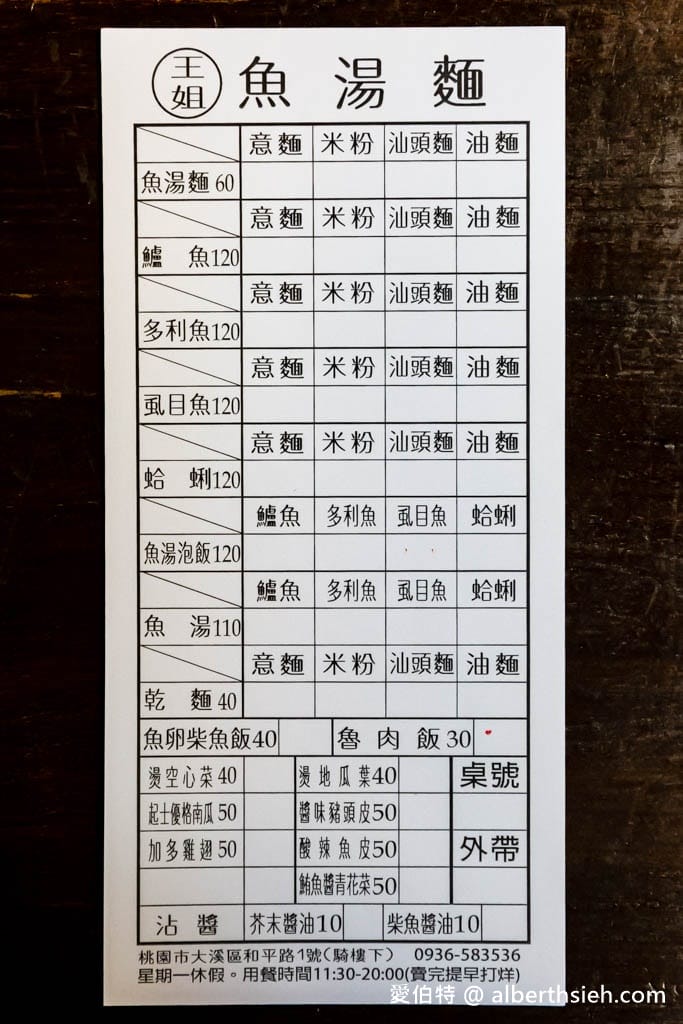 王姐 魚湯麵
意麵 米粉 汕頭麵 油麵
魚湯麵 60
意麵 米粉 汕頭麵 油麵
鱸魚120
意麵 米粉 汕頭麵 油麵
多利魚120
意麵 米粉 汕頭麵 油麵
虱目魚120
意麵 米粉 汕頭麵 油麵
蛤蜊120
鱸魚 多利魚 虱目魚 蛤蜊
魚湯泡飯120
鱸魚 多利魚 虱目魚 蛤蜊
魚湯110
意麵 米粉 汕頭麵 油麵
乾麵 40
魚卵柴魚飯40 魯肉飯30
燙空心菜40 燙地瓜葉40 桌號
起士優格南瓜50 醬味豬頭皮50
加多雞翅50 酸辣魚皮50 外帶
鮪魚醬青花菜50
沾醬 芥末醬油10 柴魚醬油10
桃園市大溪區和平路1號(騎樓下) 0936-583536
星期一休假。用餐時間11:30-20:00(賣完提早打烊)
愛伯特 @ alberthsieh.com